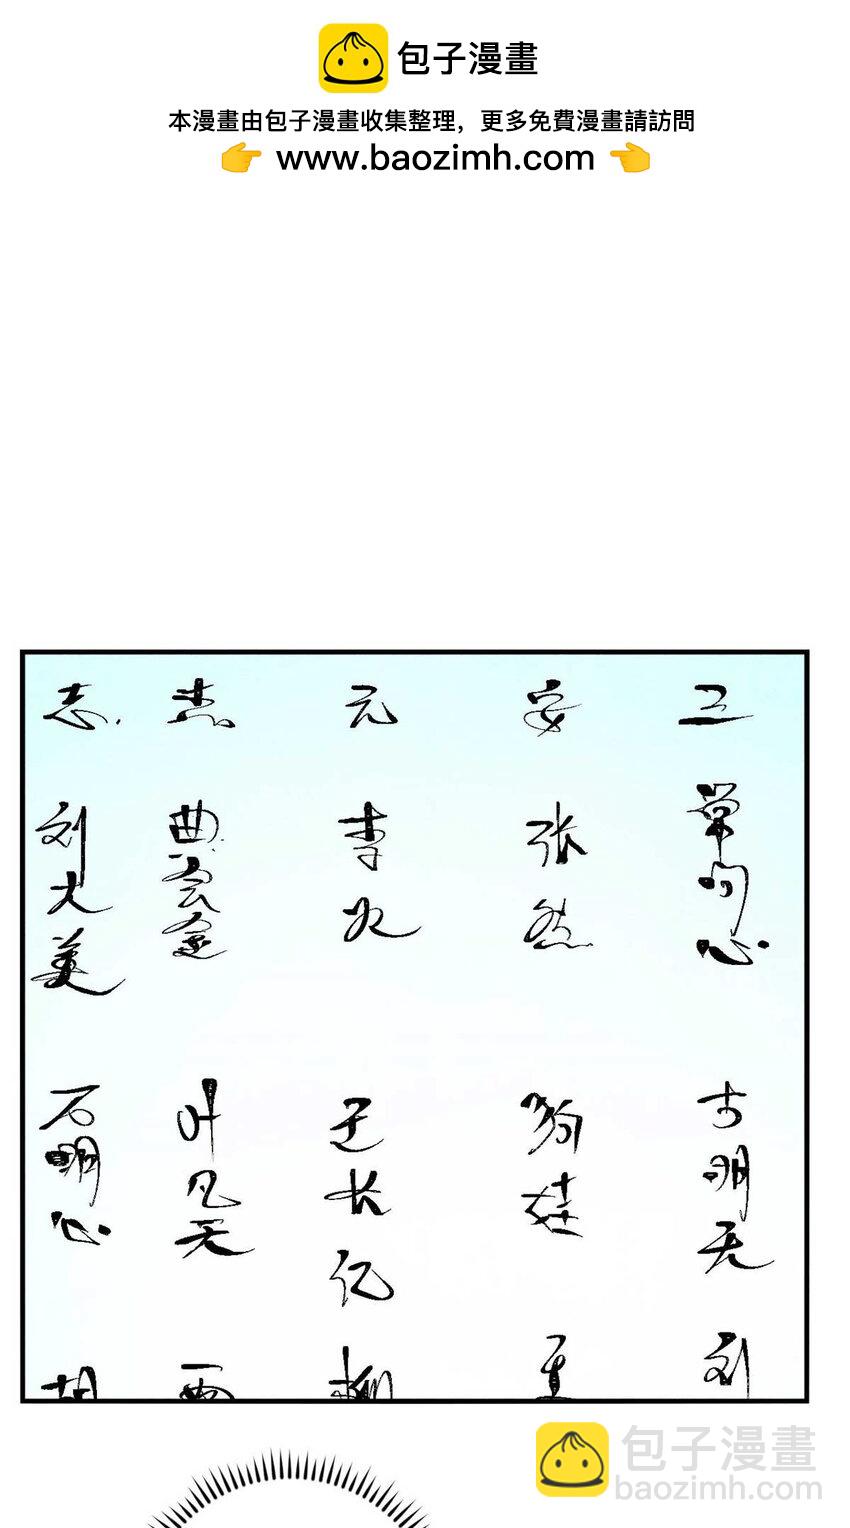 包子漫畫
本漫畫由包子漫畫收集整理,更多免費漫畫請訪問
👉 www.baozimh.com 👈
三
常向心
古明无
刘
安
张然
狗娃
元
李火
王长亿
柳
杰
曲云金
叶凡天
贾
志
刘大美
石明心
胡
包子漫畫
baozimh.com